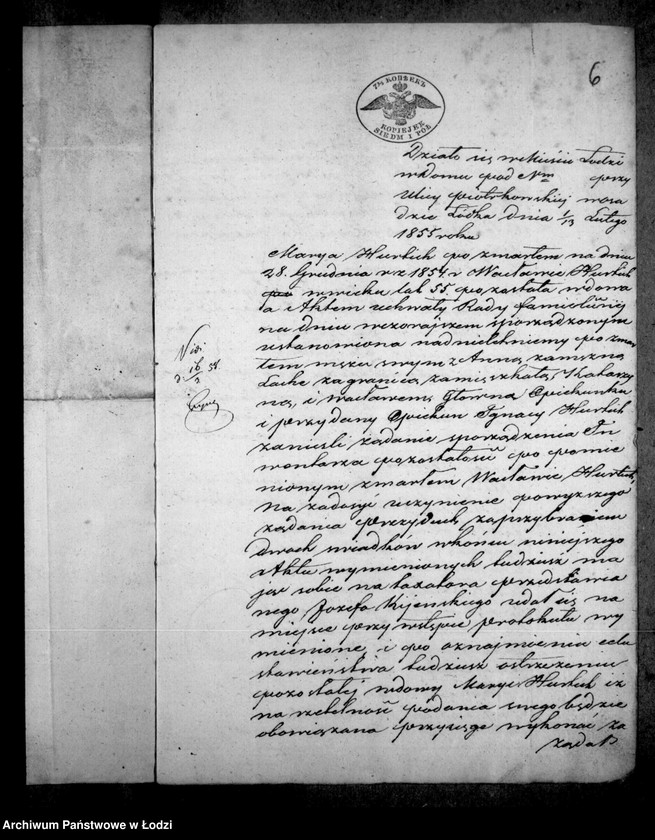 6
7½ КОПѢЕКЪ
KOPIEJEK
SIEDM I PÓŁ
Działo się w Mieście Łodzi
w domu pod Nm przy
Ulicy Piotrkowskiej w osa
dzie Łódka dnia 1/13 Lutego
1855 roku
Marya Hurtich po zmarłem na dniu
28. Grudnia r z 1854. r Wacławie Hurtich
w wieku lat 55 pozostała wdowa
a Aktem uchwały Rady familijnej
na dniu wczorajszem sporządzonym
ustanowiona nad nieletniemy po zmar
łem mężu swym z Anną zamężną
Lache za granicą zamieszkałą, Katarzy
ną, i Wacławem Główna Opiekunka
i przydany Opiekun Ignacy Hurtich
zanieśli żądanie sporządzenia In
wentarza pozostałości po pomie
nionym zmarłem Wacławie Hurtich,
Na zadosyć uczynienie powyższego
żądania Przyduch zaprzybraniem
dwóch świadków w końcu niniejszego
Aktu wymienionych tudzież ma
jąc sobie na taxatora przedstawio
nego, Józefa Kijeńskiego udał się na
miejsce przy wstępie protokułu wy
mienione, i po oznajmieniu celu
stawieństwa tudzież ostrzeżeniu
pozostałej wdowy Maryi Hurtich iż
na rzetelność podania swego będzie
obowiązana przysięgę wykonać za
żądał